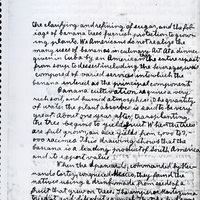 the clarifying and refining of sugar, and the fol-
iage of banana trees furnish protection to grow-
ing plants. We Americans do not realize the
many uses of bananas in culinary art. At a dinner
given in Cuba by an American the entire repast
from soup to dessert including the beverages was
composed of varied service into which the
banana entered as the principal component.
Banana cultivation requires a very
rich soil, and humid atmosphere. The quantity
of water the plant absorbs is said to be very
great. About one year after transplanting
the tree begins to yield fruit. When the trees
are full grown, an acre yields from
an acre. This drawing shows that the
banana is a leading product of South America
and its export value
When the Spaniards, commanded by Her-
nando Cortez, conquered Mexico, they found the
natives using a drink made from seeds of a
fruit that grew on trees. The
tried it and